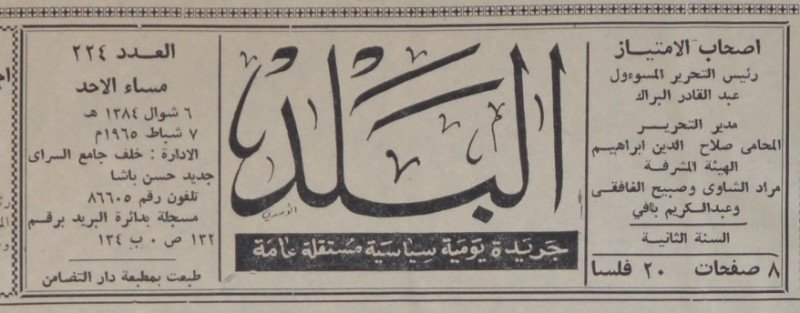 اصحاب الامتياز
رئيس التحرير المسوءول
عبد القادر البراك
مدير التحرير
المحامى صلاح الدين ابراهيم
الهيئة المشرفة
مراد الشاوى وصبيح الغافقى
وعبدالكريم بافي
السنة الثانية
٨ صفحات ٢٠ فلسا
البلد
جريدة يومية سياسية مستقلة عامة
العدد ٢٢٤
مساء الاحد
٦ شوال ١٣٨٤ هـ
٧ شباط ١٩٦٥م
الادارة : خلف جامع السراى
جديد حسن باشا
تلفون رقم ٨٦٦٠٥
مسجلة بدائرة البريد برقم
١٣٢ ص ٠ ب ١٣٤
طبعت بمطبعة دار التضامن